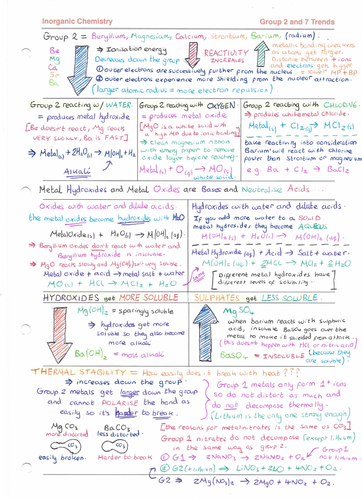 Inorganic Chemistry
Group 2 and 7 Trends
Group 2 = Beryllium, Magnesium, Calcium, Strontium, Barium, (radium)..
Be
Mg
Ca
Sr
Ba
⇒ Ionisation energy
Decreases down the group
① outer electrons are successively further from the nucleus
② outer electrons experience more shielding from the nuclear attraction.
(larger atomic radius = more electron repulsion).
REACTIVITY
INCREASES
metallic bonding weakens
as atoms get larger.
Distance between + ions
and electrons gets bigger
= lower MP + BP
Group 2 reacting w/ WATER
= produces metal hydroxide
[Be doesn't react, Mg reacts
VERY SLOWLY, Ba is FAST]
⇒ Metal(s) + 2H₂O(l) → M(OH)₂ + H₂
Alkali
Group 2 reacting with OXYGEN
= produces metal oxide
[MgO is a white solid with
a high MP due to ionic bonding]
⇒ clean magnesium ribbon
with emery paper to remove
oxide layer before reacting.
Metal(s) + O₂(g) → MO(s)
white solids
Group 2 reacting with CHLORINE
= produces white metal chloride.
Metal(s) + Cl₂(g) → MCl₂(s)
taking reactivity into consideration
Barium will react with chlorine
faster than strontium or magnesium
e.g. Ba + Cl₂ → BaCl₂
Metal Hydroxides and Metal Oxides are Bases and Neutralise Acids
Oxides with water and dilute acids
the metal oxides become hydroxides with H₂O
Metal Oxide(s) + H₂O(l) → M(OH)₂ (aq)
⇒ Beryllium oxides don't react with water and
Beryllium hydroxide is insoluble.
⇒ MgO reacts slowly and Mg(OH)₂ isn't very soluble.
Metal oxide + acid → metal salt + water
MO + HCl → MCl₂ + H₂O
Hydroxides with water and dilute acids.
If you add water to a SOLID
metal hydroxide they become AQUEOUS
M(OH)₂ (s) + H₂O(l) → M(OH)₂ (aq).
Metal Hydroxide (aq) + Acid → Salt + water.
M(OH)₂ (aq) + 2HCl → MCl₂ + 2H₂O
[Different metal hydroxides have
different levels of solubility]
HYDROXIDES get MORE SOLUBLE
Mg(OH)₂ = sparingly soluble
⇒ hydroxides get more
soluble so they also become
more alkali
Ba(OH)₂ = most alkali
SULPHATES get LESS SOLUBLE
MgSO₄
when barium reacts with sulphuric
acid, insoluble BaSO₄ goes over the
metal to make it sealed from attack.
(this doesn't happen with HCl or nitric acid)
BaSO₄ = INSOLUBLE (because they
are soluble).
THERMAL STABILITY = How easily does it break with heat???
⇒ increases down the group
Group 2 metals get larger down the group
and cannot POLARISE the bond as
easily so it's harder to break.
MgCO₃
more distorted
easily broken.
BaCO₃
less distorted
Harder to break
Group 1 metals only form 1⁺ ions
so do not distort as much and
do not decompose thermally.
(Lithium is the only one strong enough)
[the reasons for metal nitrates is the same as CO₃]
Group 1 nitrates do not decompose (except lithium)
in the same way as group 2.
① G1 ⇒ 2NaNO₃ → 2NaNO₂ + O₂
② G2 (+ lithium) ⇒
G2 ⇒ 2Mg(NO₃)₂ → 2MgO + 4NO₂ + O₂.